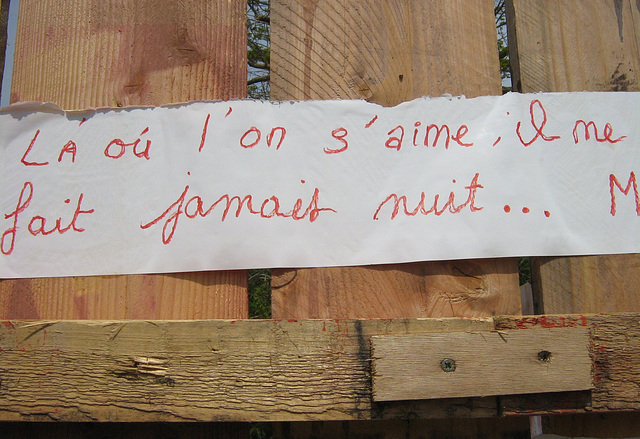 LÀ où l'on s'aime, il ne
fait jamais nuit... M